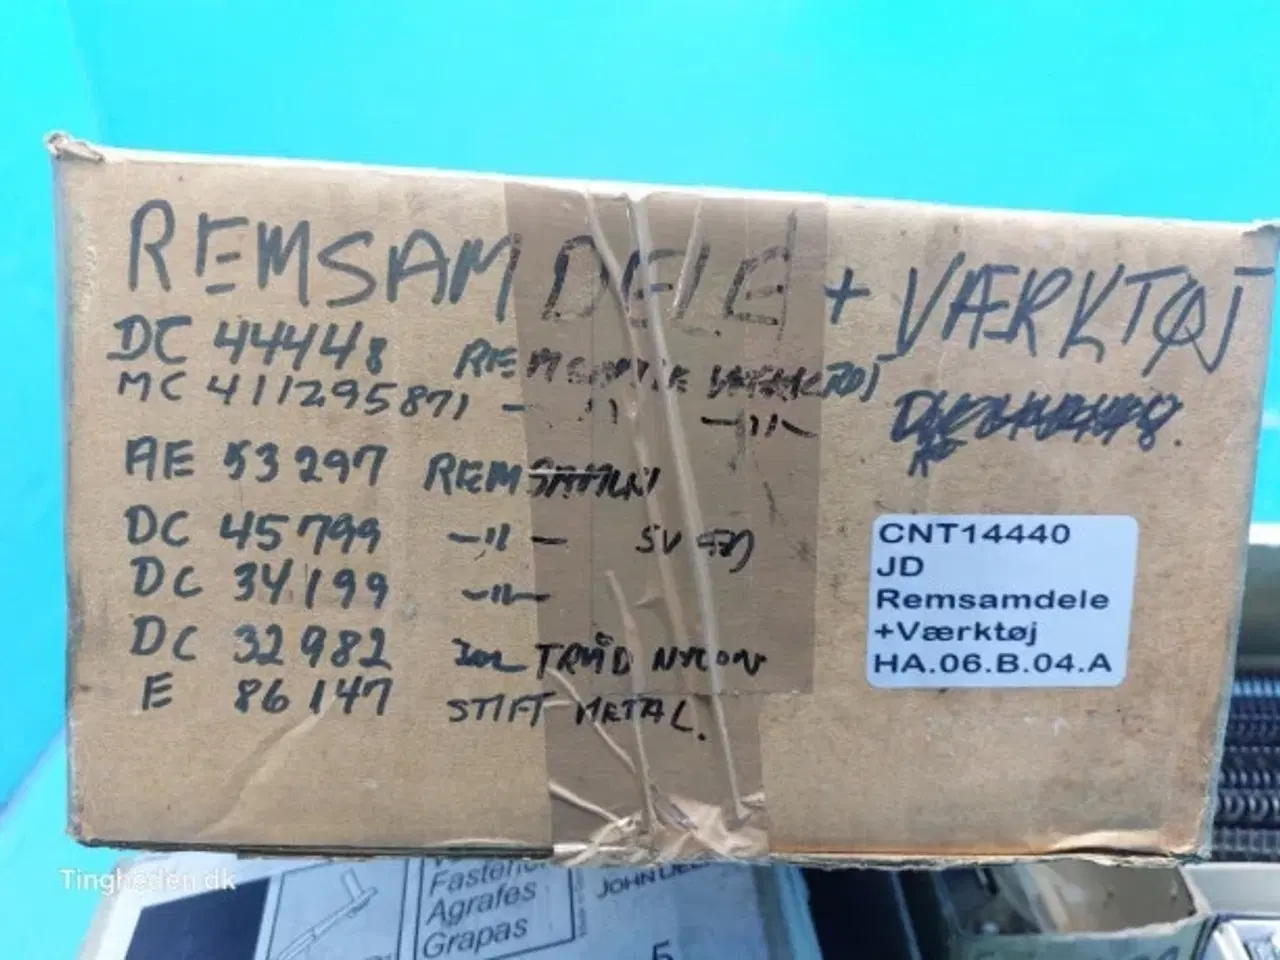 REMSAMDELE + VÆRKTØJ
DC 44448 REMSAMLE VÆRKTØJ
MC 411295871 - " -"-
AE 53297 REMSAMLNI
DC 45799 -"-
DC 34199 -"-
DC 32982 TRÅD NYLON
E 86147 STIFT METAL.
CNT14440
JD
Remsamdele
+Værktøj
HA.06.B.04.A
Agrafes
Grapas
5
Tingheden.dk